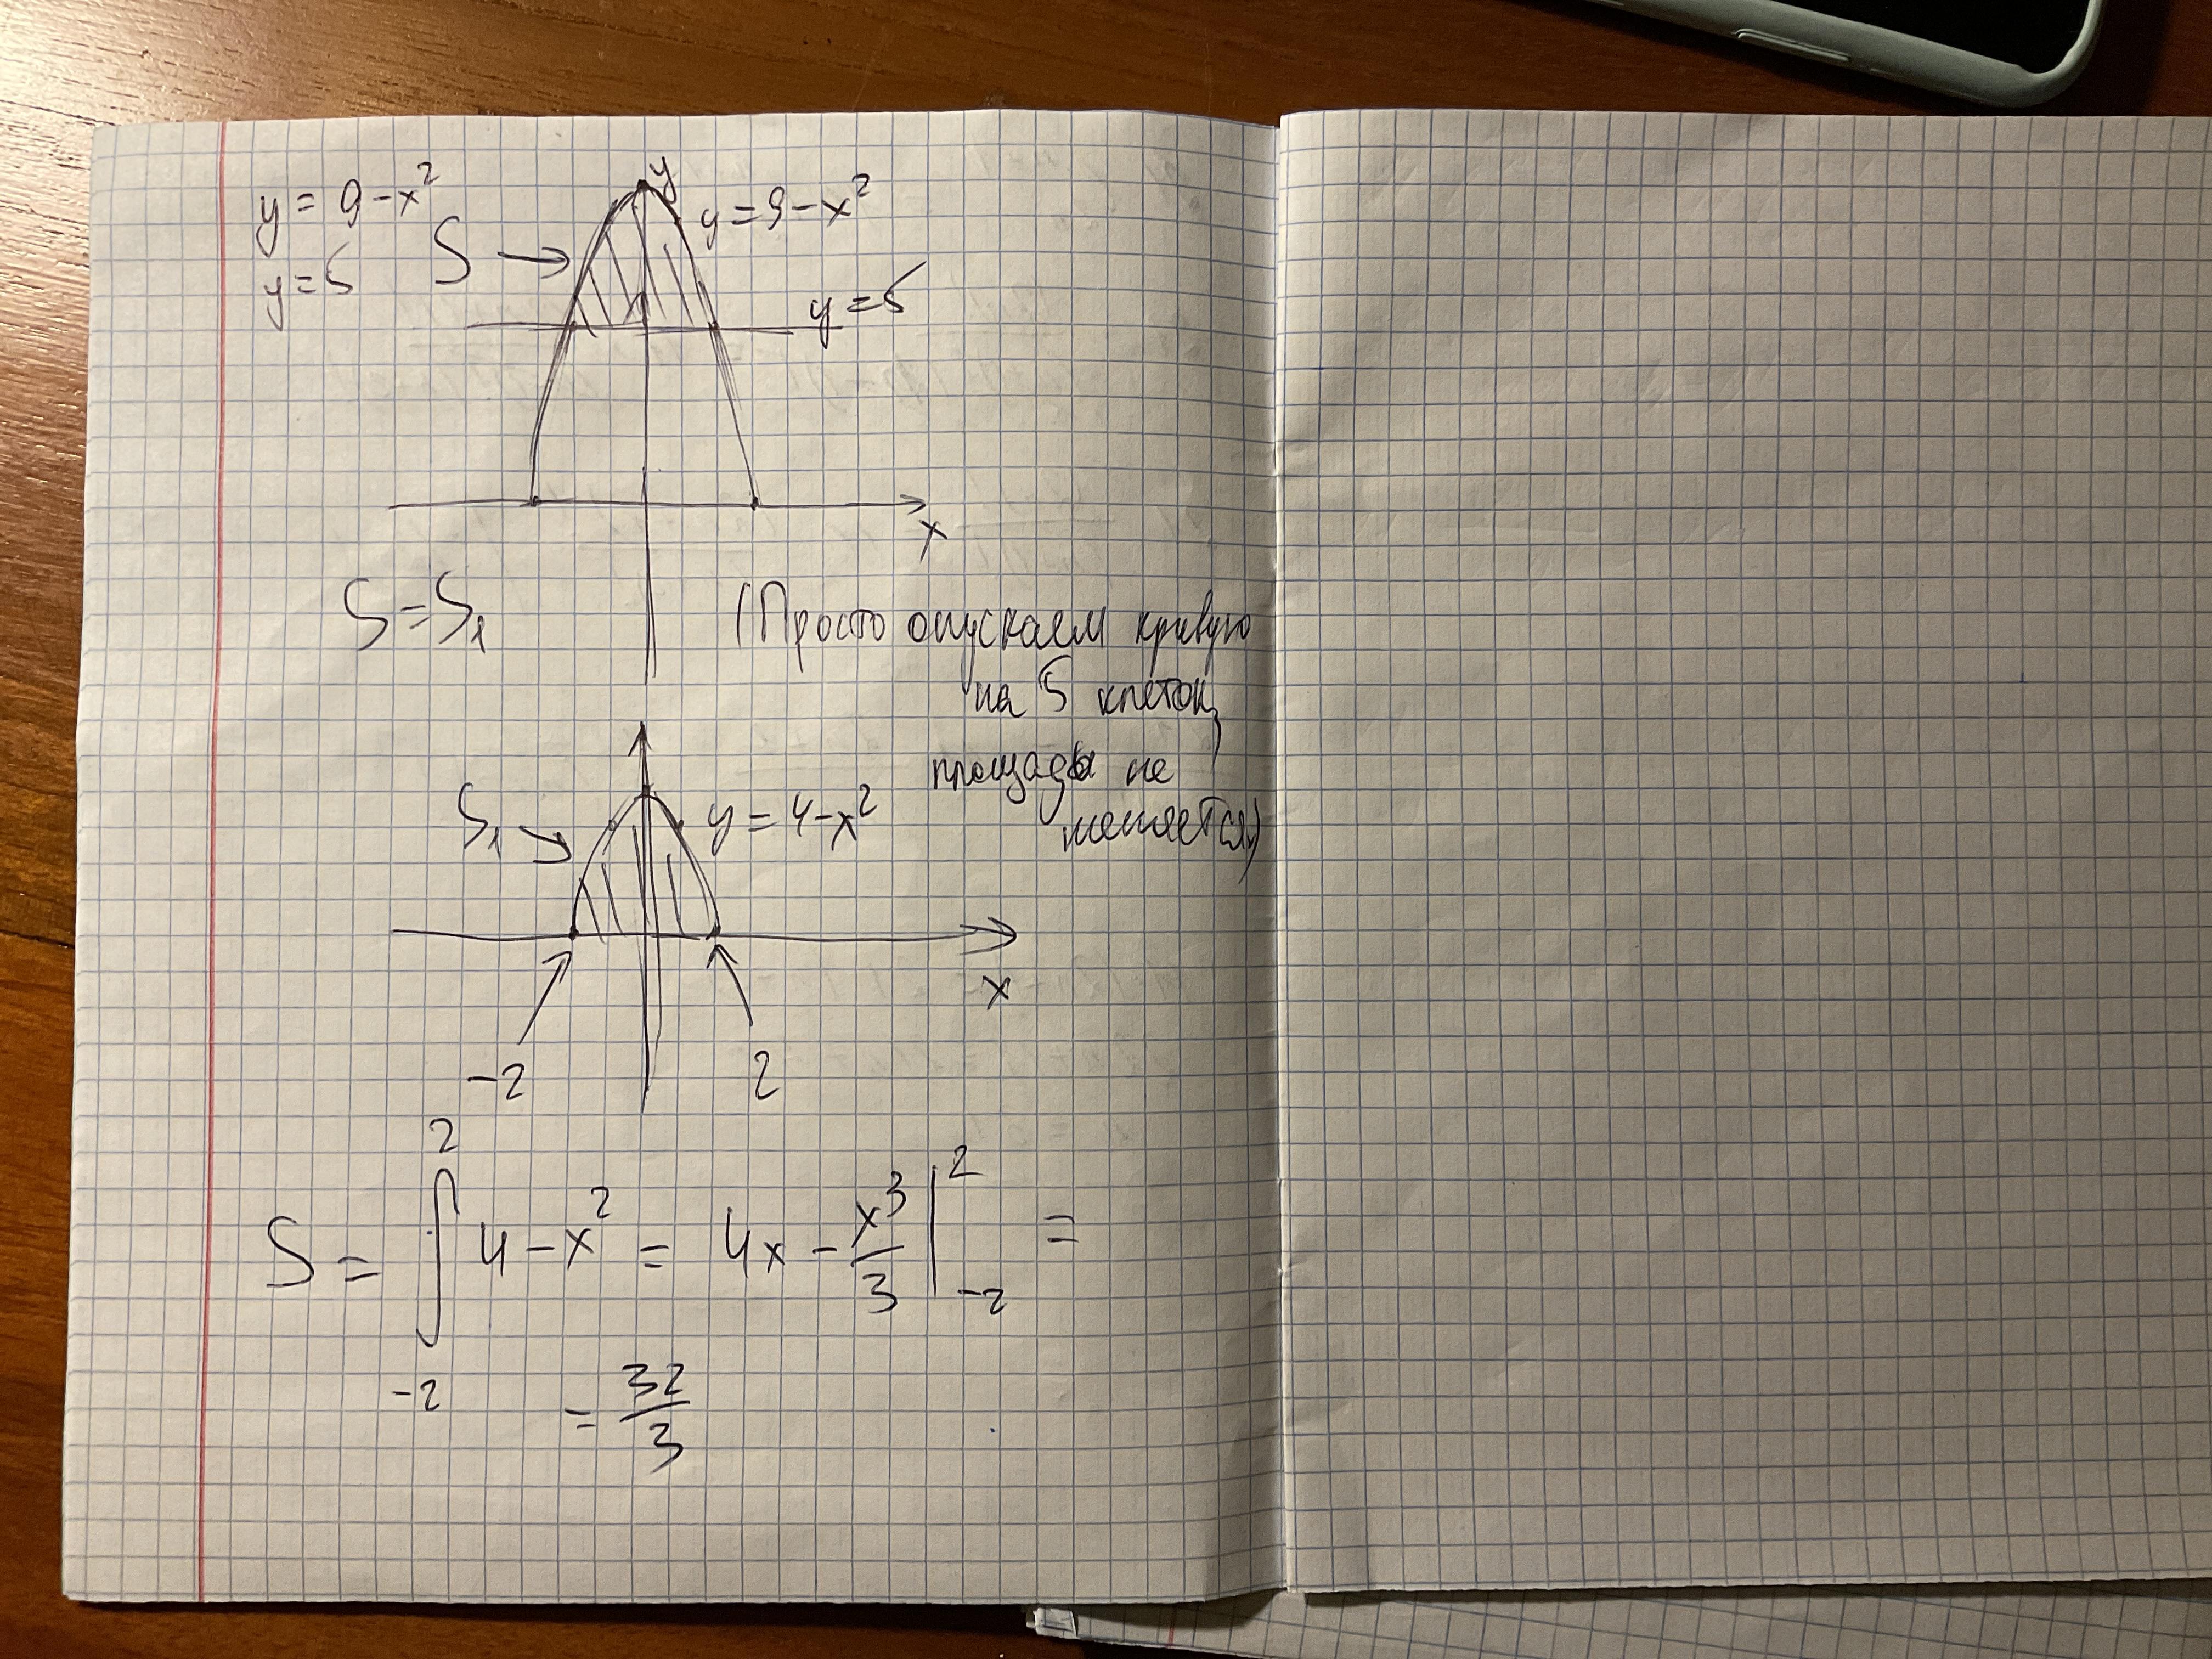 y = 9 - x²
y = 5
S
y
y = 9 - x²
y = 5
x
S = S₁
(Просто опускаем кривую
на 5 клеток,
площадь не
меняется)
S₁
y = 4 - x²
x
-2
2
S = ∫₋₂² 4 - x² = 4x - x³/3 |₋₂² =
= 32/3